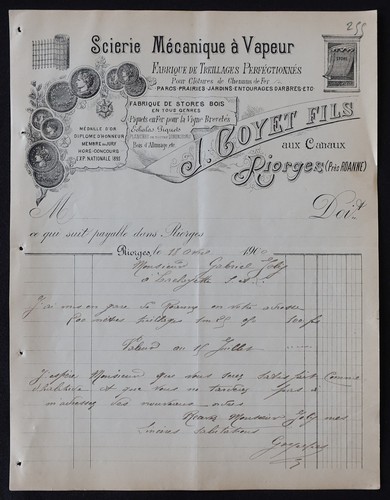 255
Scierie Mécanique à Vapeur
FABRIQUE DE TREILLAGES PERFECTIONNÉS
Pour Clôtures de Chemins de Fer
PARCS-PRAIRIES-JARDINS-ENTOURAGES D'ARBRES-ETC
FABRIQUE DE STORES BOIS
EN TOUS GENRES
Piquets en Fer pour la Vigne Brevetés
Echalas Piquets
Bois d'Allumage, etc
MÉDAILLE D'OR
DIPLÔME D'HONNEUR
MEMBRE DU JURY
HORS-CONCOURS
EXP. NATIONALE
J. GOYET FILS
aux Canaux
Riorges (Près ROANNE)
M Doit
ce qui suit payable dans Riorges
Riorges, le 18 190
Monsieur Gabriel
à
J'ai mis en gare de Roanne en votre adresse
treillages
Valeur au 15 Juillet
J'espère Monsieur que vous serez satisfait comme
d'habitude et que vous ne tarderez pas à
m'adresser des nouveaux ordres
Recevez Monsieur mes
sincères salutations